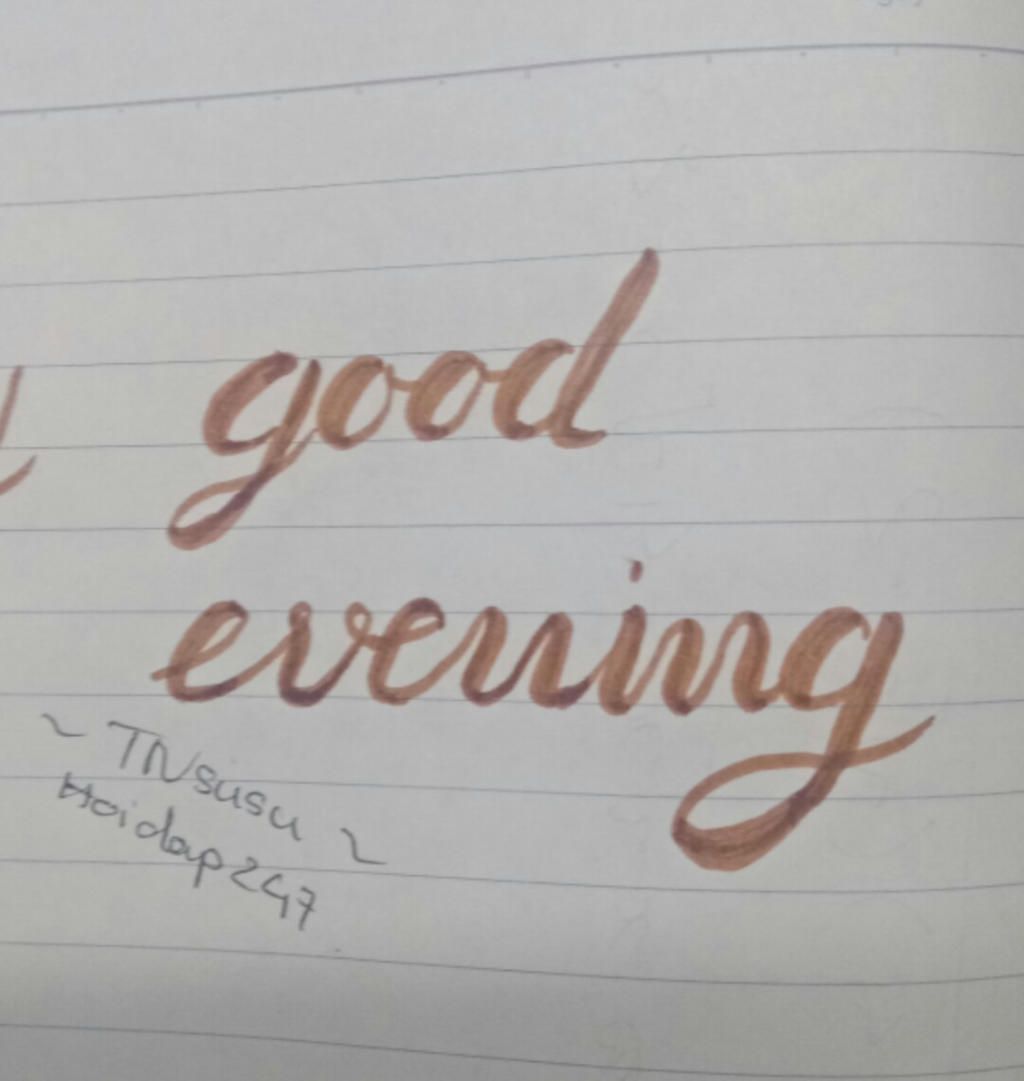 good
evening
~ TNsusu ~
Hoidap247